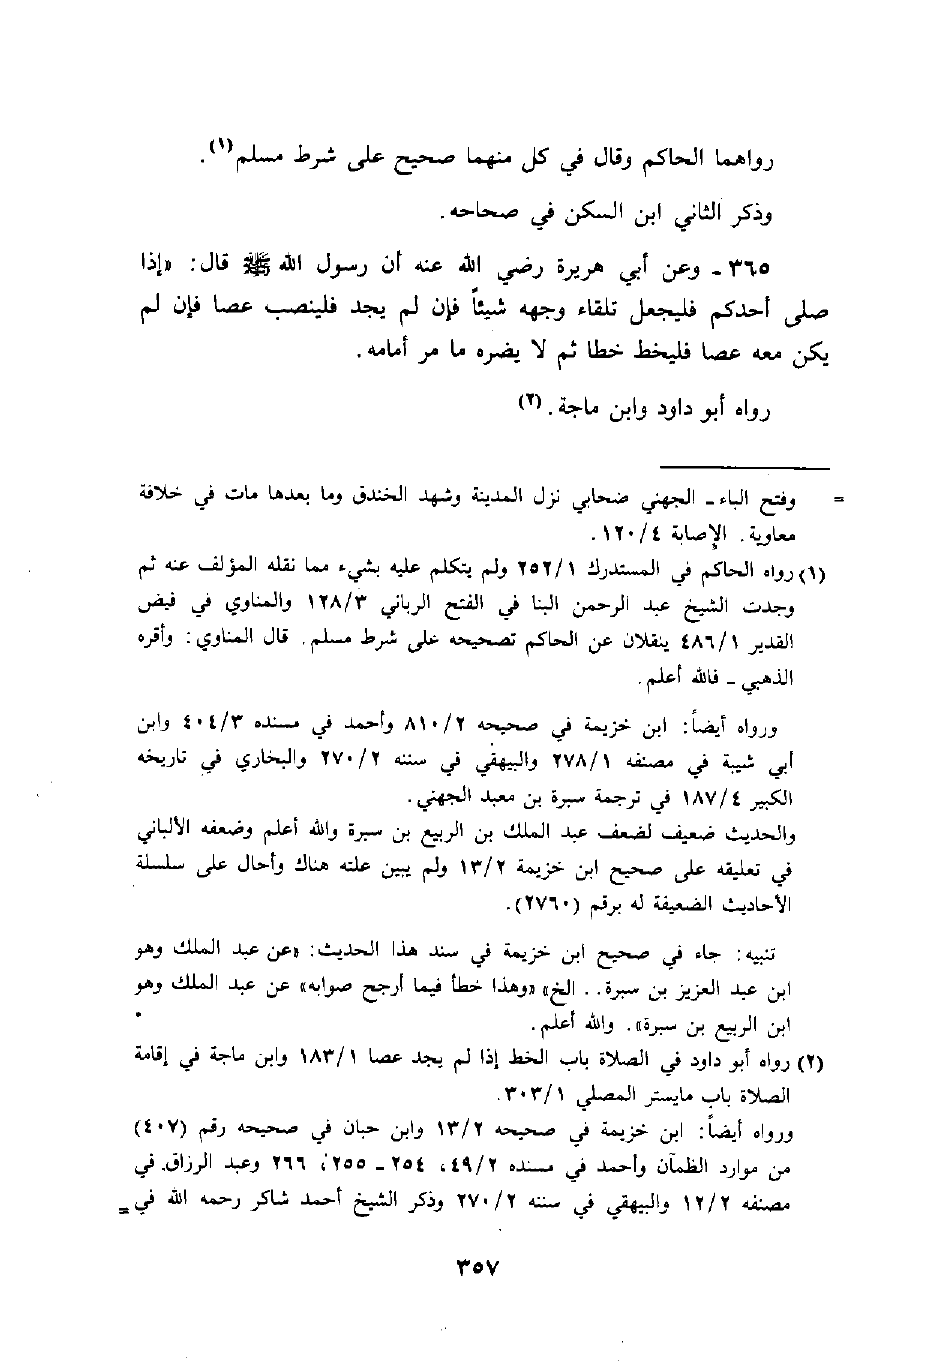 رواهما الحاكم وقال في كل منهما صحيح على شرط مسلم(١).
وذكر الثاني ابن السكن في صحاحه.
٣٦٥ ـ وعن أبي هريرة رضي الله عنه أن رسول الله ﷺ قال: «إذا
صلى أحدكم فليجعل تلقاء وجهه شيئاً فإن لم يجد فلينصب عصا فإن لم
يكن معه عصا فليخط خطا ثم لا يضره ما مر أمامه.
رواه أبو داود وابن ماجة.(٢)
= وفتح الباء ـ الجهني صحابي نزل المدينة وشهد الخندق وما بعدها مات في خلافة
معاوية. الإصابة ٤/ ١٢٠.
(١) رواه الحاكم في المستدرك ١/ ٢٥٢ ولم يتكلم عليه بشيء مما نقله المؤلف عنه ثم
وجدت الشيخ عبد الرحمن البنا في الفتح الرباني ٣/ ١٢٨ والمناوي في فيض
القدير ١/ ٤٨٦ ينقلان عن الحاكم تصحيحه على شرط مسلم. قال المناوي: وأقره
الذهبي ـ فالله أعلم.
ورواه أيضاً: ابن خزيمة في صحيحه ٢/ ٨١٠ وأحمد في مسنده ٣/ ٤٠٤ وابن
أبي شيبة في مصنفه ١/ ٢٧٨ والبيهقي في سننه ٢/ ٢٧٠ والبخاري في تاريخه
الكبير ٤/ ١٨٧ في ترجمة سبرة بن معبد الجهني.
والحديث ضعيف لضعف عبد الملك بن الربيع بن سبرة والله أعلم وضعفه الألباني
في تعليقه على صحيح ابن خزيمة ٢/ ١٣ ولم يبين علته هناك وأحال على سلسلة
الأحاديث الضعيفة له برقم (٢٧٦٠).
تنبيه: جاء في صحيح ابن خزيمة في سند هذا الحديث: «عن عبد الملك وهو
ابن عبد العزيز بن سبرة.. الخ» «وهذا خطأ فيما أرجح صوابه» عن عبد الملك وهو
ابن الربيع بن سبرة». والله أعلم.
(٢) رواه أبو داود في الصلاة باب الخط إذا لم يجد عصا ١/ ١٨٣ وابن ماجة في إقامة
الصلاة باب مايستر المصلي ١/ ٣٠٣.
ورواه أيضاً: ابن خزيمة في صحيحه ٢/ ١٣ وابن حبان في صحيحه رقم (٤٠٧)
من موارد الظمآن وأحمد في مسنده ٢/ ٤٩، ٢٥٤ ـ ٢٥٥، ٢٦٦ وعبد الرزاق في
مصنفه ٢/ ١٢ والبيهقي في سننه ٢/ ٢٧٠ وذكر الشيخ أحمد شاكر رحمه الله في =
٣٥٧